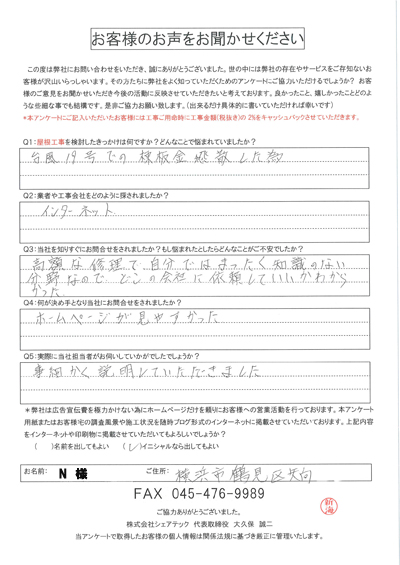 お客様のお声をお聞かせください
この度は弊社にお問い合わせをいただき、誠にありがとうございました。世の中には弊社の存在やサービスをご存知ないお
客様が沢山いらっしゃいます。その方たちに弊社をよく知っていただくためのアンケートにご協力いただけるでしょうか？ お客
様のご意見をお聞かせいただき今後の活動に反映させていただきたいと考えております。良かったこと、嬉しかったことどのよ
うな些細な事でも結構です。是非ご協力お願い致します。（出来るだけ具体的に書いていただければ幸いです）
*本アンケートにご記入いただいたお客様には工事ご用命時に工事金額(税抜き)の 2%をキャッシュバックさせていただきます。
Q1：屋根工事を検討したきっかけは何ですか？どんなことで悩まれていましたか？
台風19号での棟板金飛散した為
Q2：業者や工事会社をどのように探されましたか？
インターネット
Q3：当社を知りすぐにお問合せをされましたか？もし悩まれたとしたらどんなことがご不安でしたか？
高額な修理で自分ではまったく知識のない
分野なので、どこの会社に依頼していいかわから
なかった
Q4：何が決め手となり当社にお問合せをされましたか？
ホームページが見やすかった
Q5：実際に当社担当者がお伺いしていかがでしたでしょうか？
事細かく説明していただきました
＊弊社は広告宣伝費を極力かけない為にホームページだけを頼りにお客様への営業活動を行っております。本アンケート
用紙またはお客様宅の調査風景や施工状況を随時ブログ形式のインターネットに掲載させていただいております。上記内容
をインターネットや印刷物に掲載させていただいてもよろしいでしょうか？
（　）名前を出してもよい （✓）イニシャルなら出してもよい
お名前： N 様 ご住所： 横浜市鶴見区矢向
FAX 045-476-9989
ご協力ありがとうございました。
株式会社シェアテック 代表取締役 大久保 誠二
新海
当アンケートで取得したお客様の個人情報は関係法規に基づき厳正に管理いたします。